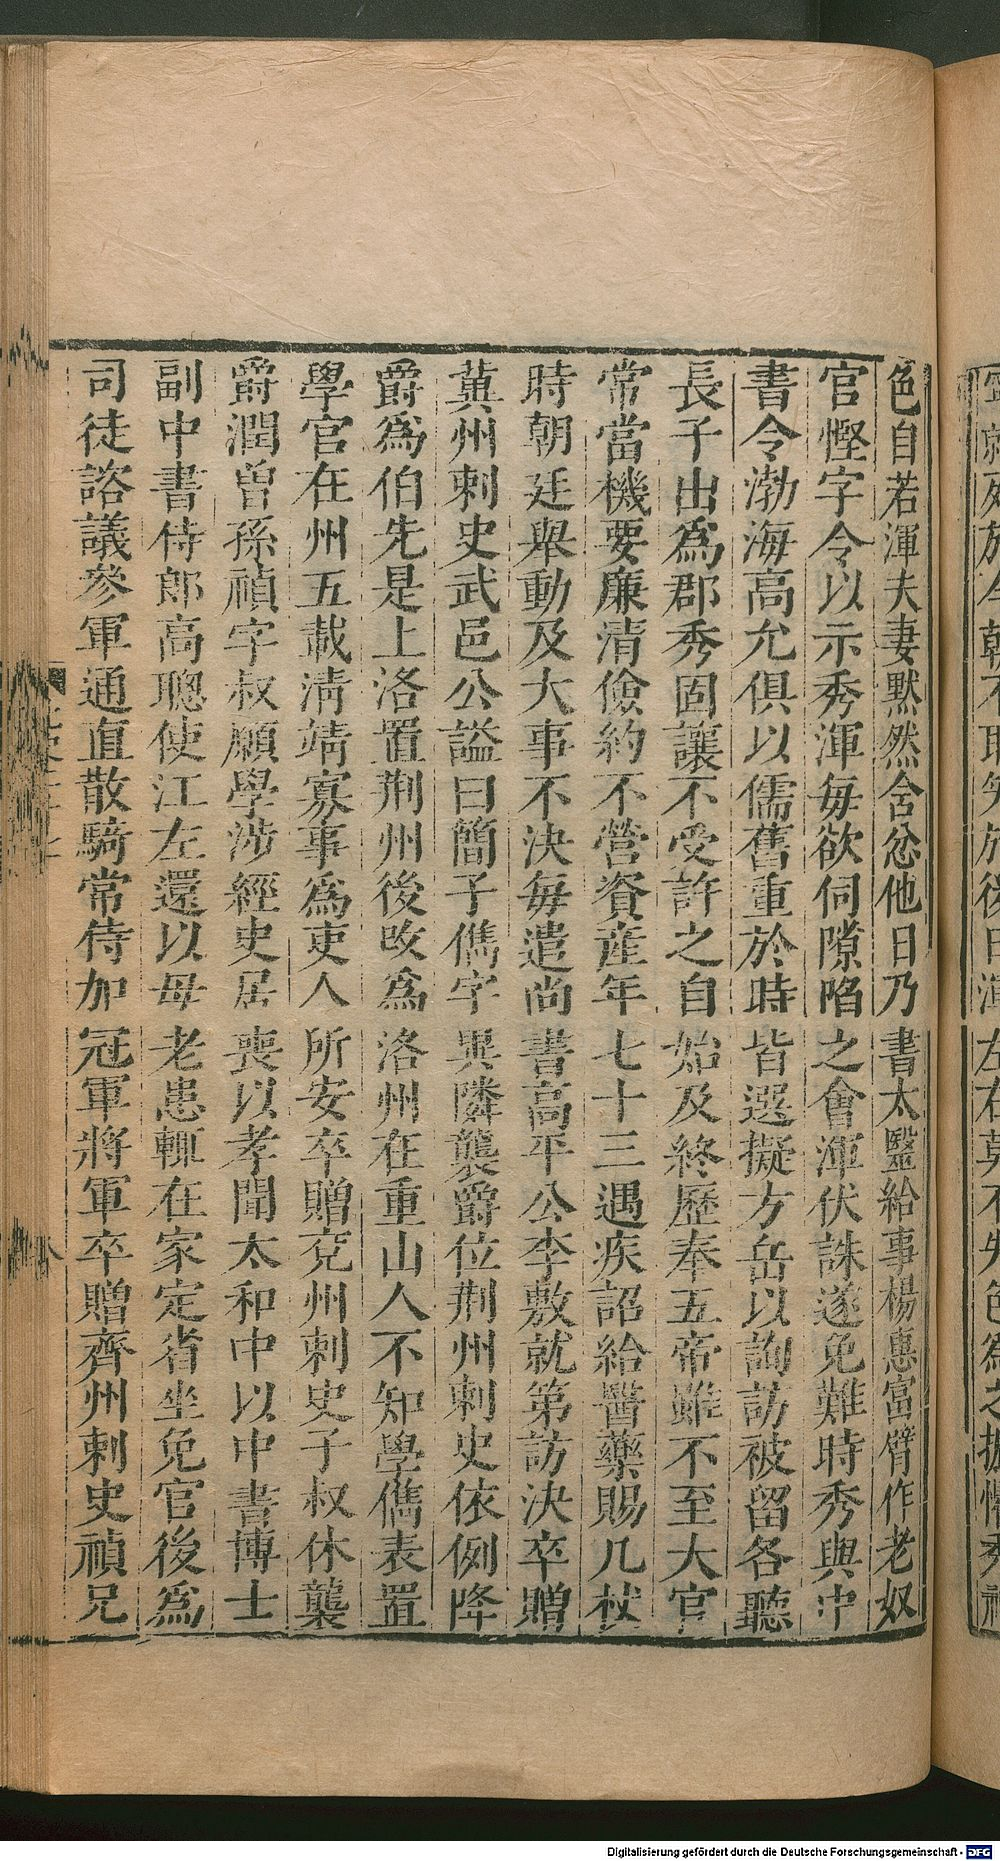 色自若渾夫妻默然含忿他日乃書太醫給事楊惠富臂作老奴
官慳字令以示秀渾每欲伺隙陷之會渾伏誅遂免難時秀與中
書令渤海高允俱以儒舊重於時皆選擬方岳以詢訪被留各聽
長子出爲郡秀固讓不受許之自始及終歷奉五帝雖不至大官
常當機要廉清儉約不營資産年七十三遇疾詔給醫藥賜几杖
時朝廷舉動及大事不決每遣尚書高平公李敷就第訪決卒贈
冀州刺史武邑公謚曰簡子儁字異隣襲爵位荆州刺史依例降
爵爲伯先是上洛置荆州後改爲洛州在重山人不知學儁表置
學官在州五載清靖寡事爲吏人所安卒贈兖州刺史子叔休襲
爵潤曾孫禎字叔願學涉經史居喪以孝聞太和中以中書博士
副中書侍郎高聰使江左還以母老患輒在家定省坐免官後爲
司徒諮議參軍通直散騎常侍加冠軍將軍卒贈齊州刺史禎兄
Digitalisierung gefördert durch die Deutsche Forschungsgemeinschaft - DFG